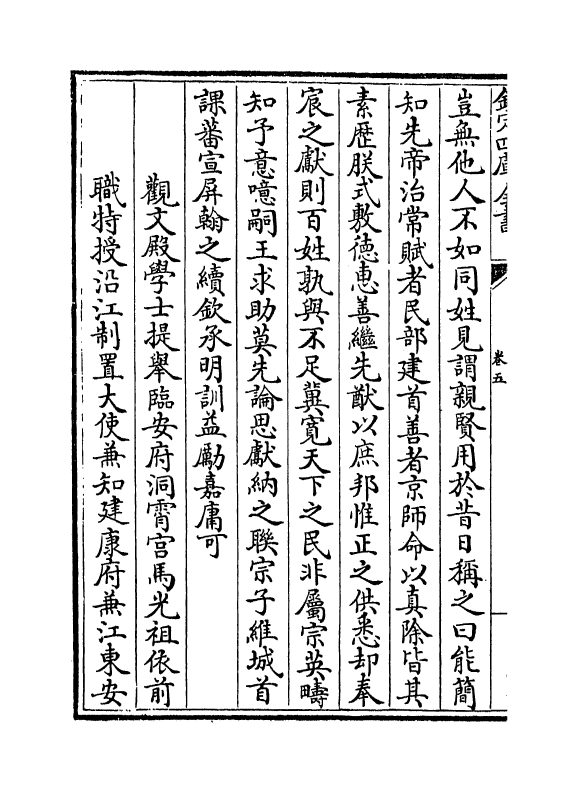 欽定四庫全書
卷五
豈無他人不如同姓見謂親賢用於昔日稱之曰能簡
知先帝治常賦者民部建首善者京師命以真除皆其
素歷朕式敷德惠善繼先猷以庶邦惟正之供悉却奉
宸之獻則百姓孰與不足冀寛天下之民非屬宗英疇
知予意噫嗣王求助莫先論思獻納之聯宗子維城首
課蕃宣屏翰之績欽承明訓益勵嘉庸可
觀文殿學士提舉臨安府洞霄宫馬光祖依前
職特授沿江制置大使兼知建康府兼江東安